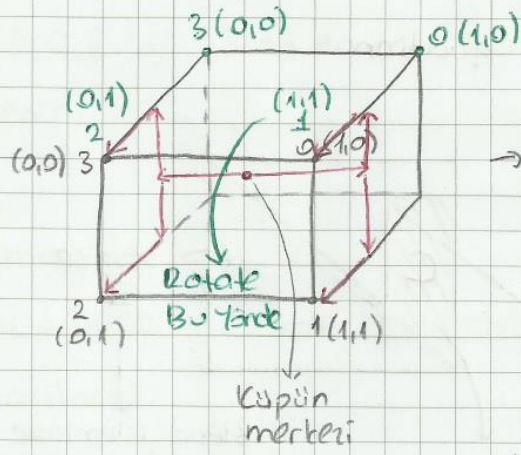 3 (0,0)
0 (1,0)
(0,1)
2
(1,1)
1
(0,0) 3
0 (1,0)
Rotate
Bu Yönde
2
(0,1)
1 (1,1)
Küpün
merkezi